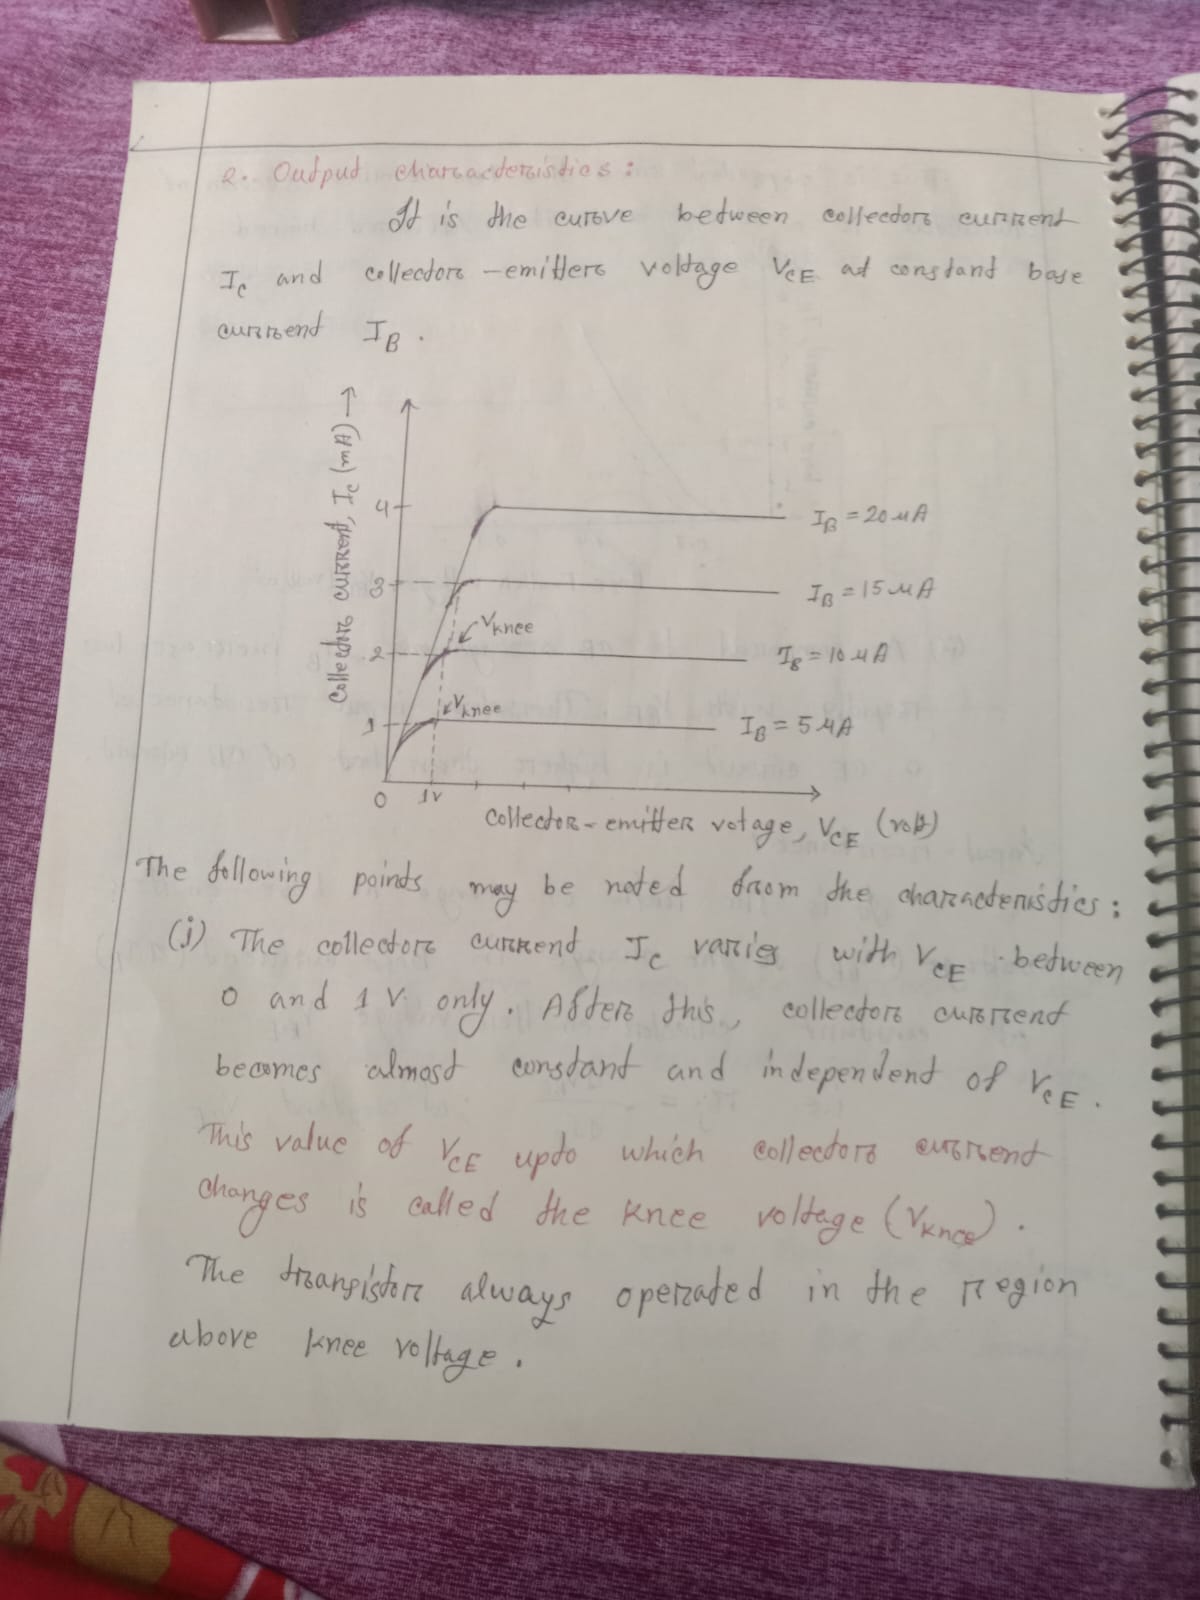 2. Output characteristics:
It is the curve between collector current
I_C and collector-emitter voltage V_CE at constant base
current I_B.
Collector current, I_C (mA) →
4
I_B = 20 μA
3
I_B = 15 μA
V_knee
2
I_B = 10 μA
V_knee
1
I_B = 5 μA
0
1V
Collector-emitter votage, V_CE (volt)
The following points may be noted from the characteristics:
(i) The collector current I_C varies with V_CE between
0 and 1 V only. After this, collector current
becomes almost constant and independent of V_CE.
This value of V_CE upto which collector current
changes is called the knee voltage (V_knee).
The transistor always operated in the region
above knee voltage.